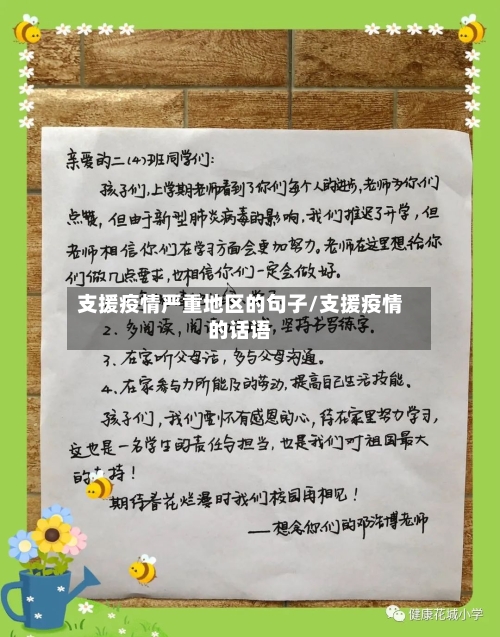 亲爱的二(4)班同学们:
孩子们,上学期老师看到了你们每个人的进步,老师为你们
点赞,但由于新型肺炎病毒的影响,我们推迟了开学,但
老师相信你们在学习方面会更加努力。老师在这里想给你
们做几点要求,也相信你们一定会做好。
支援疫情严重地区的句子/支援疫情
的话语
2、多阅读,阅 坚持书写练字。
3、在家听父母话,多与父母沟通。
4、在家参与力所能及的劳动,提高自己生活技能。
孩子们,我们要怀有感恩的心,待在家里努力学习,
这也是一名学生的责任与担当,也是我们对祖国最大
的支持!
期待春花烂漫时我们校园再相见!
——想念你们的邓浩博老师
健康花城小学